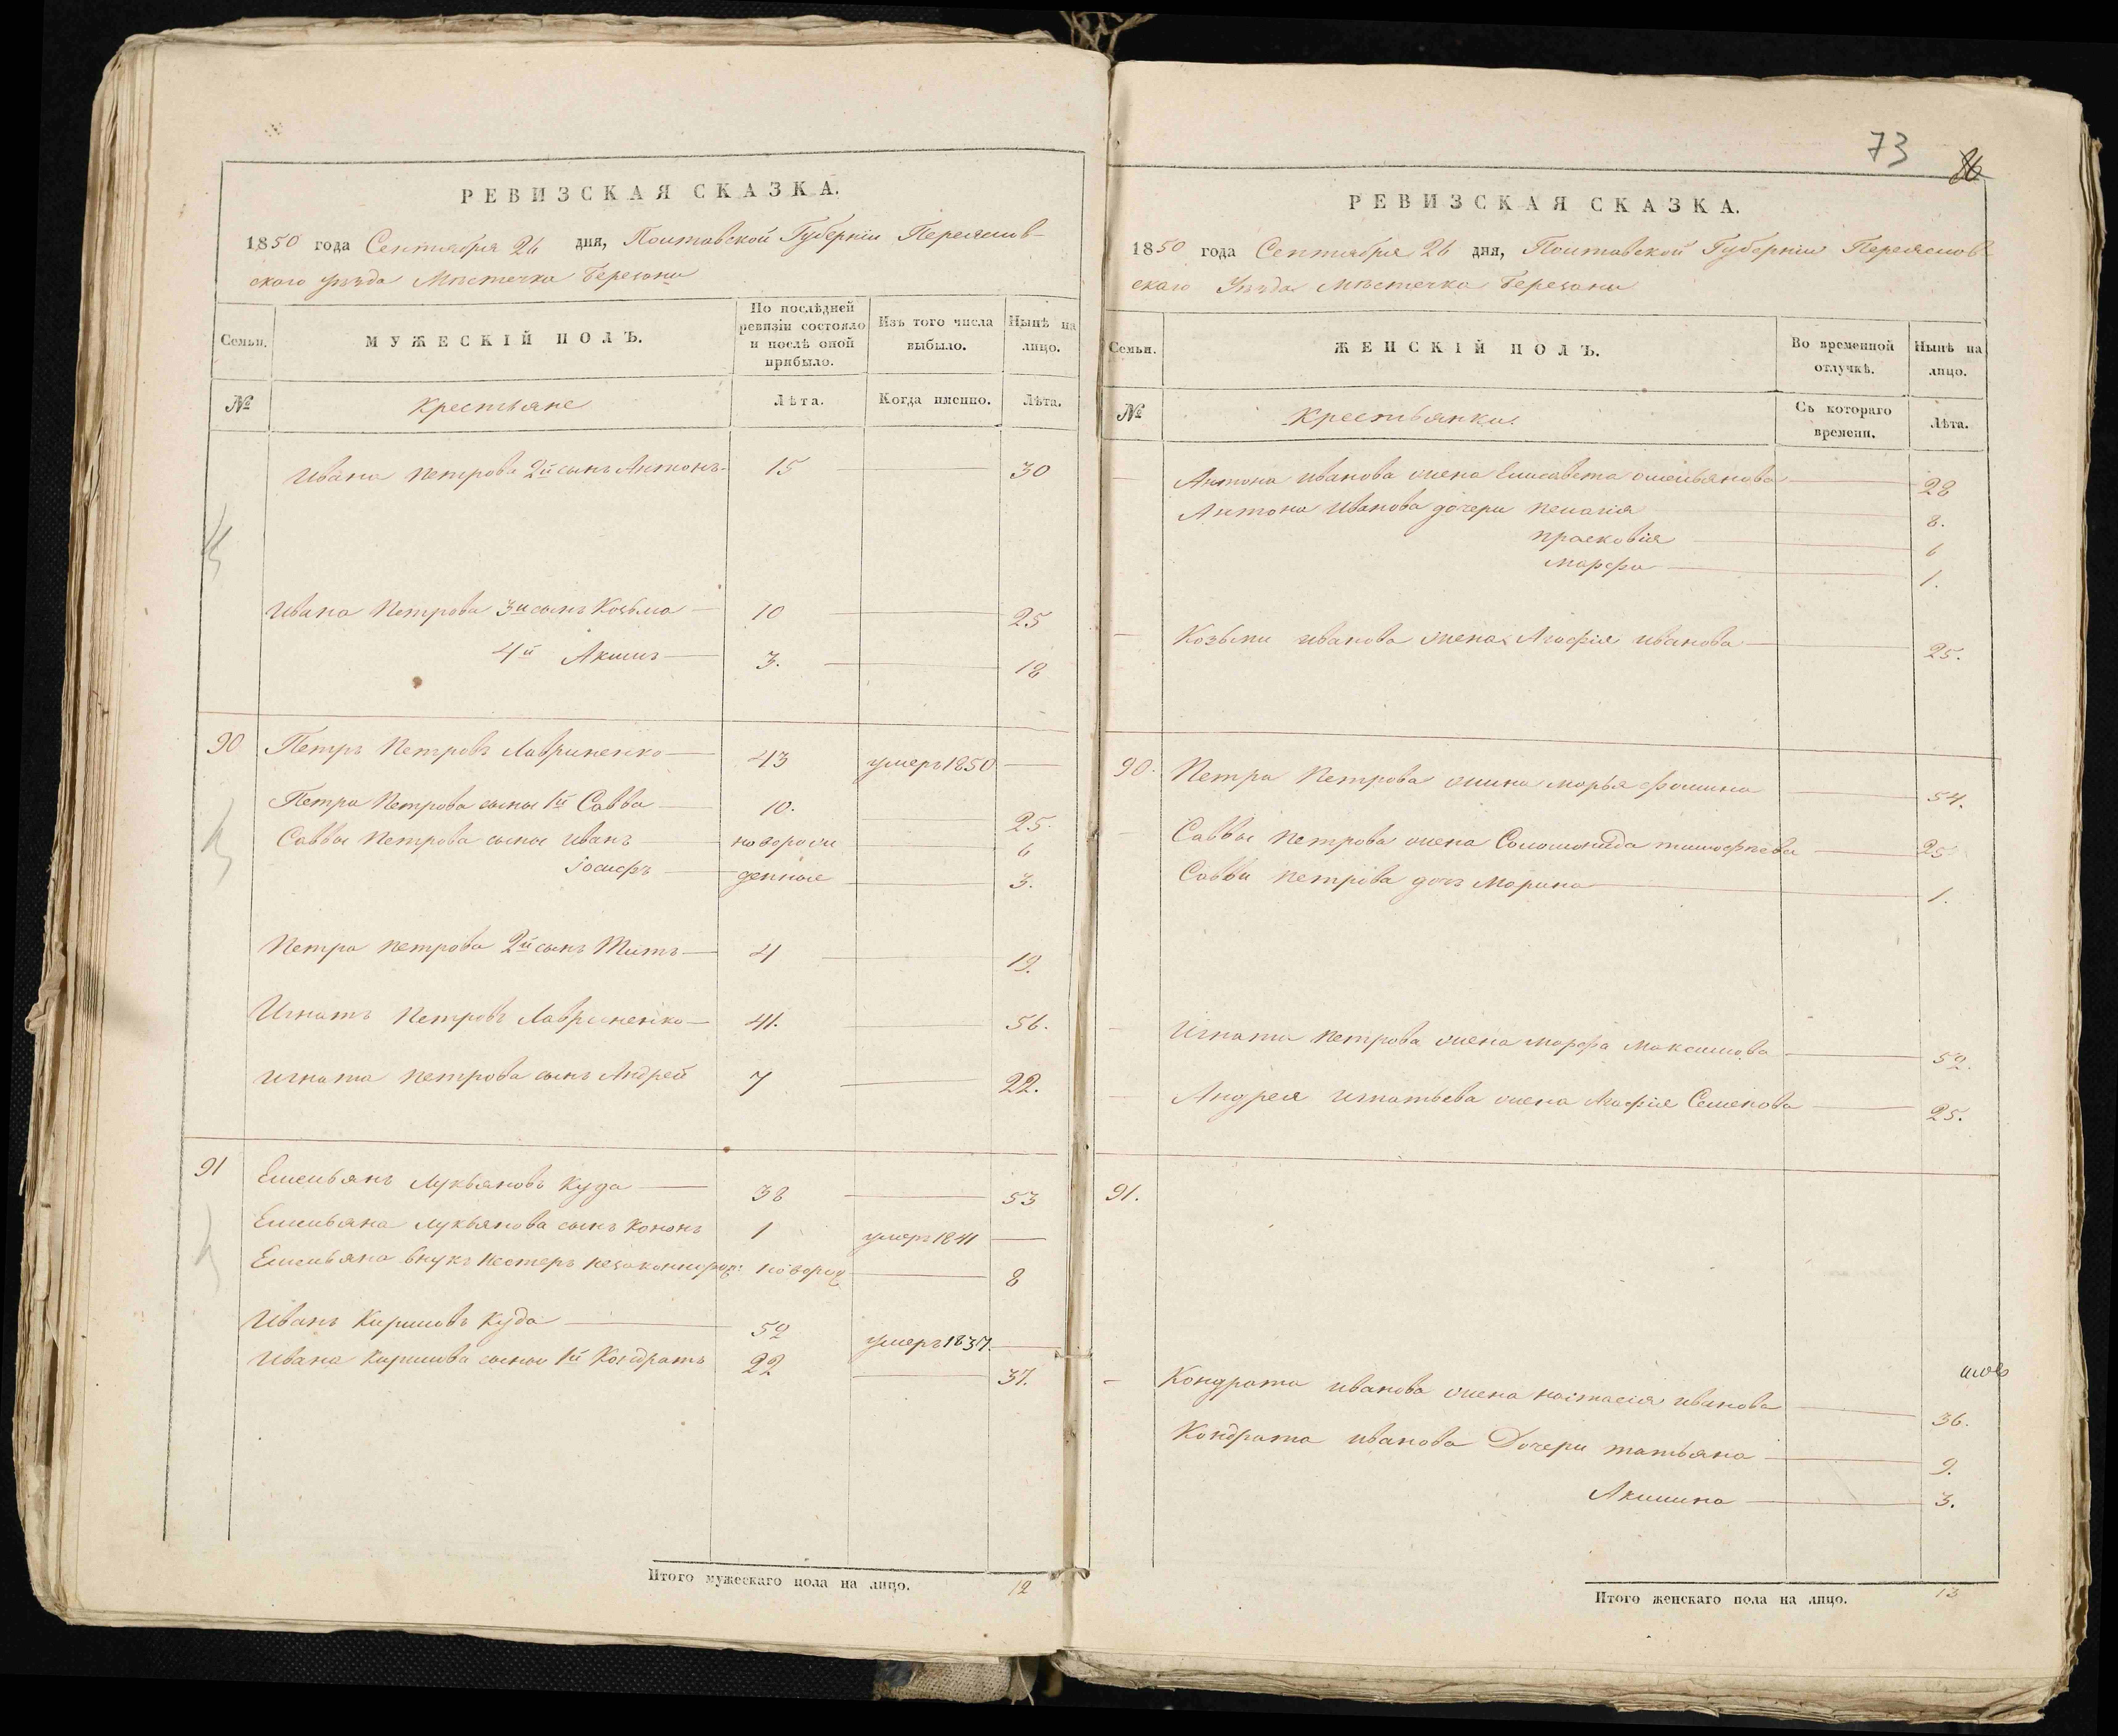 РЕВИЗСКАЯ СКАЗКА.
1850 года Сентября 26 дня, Полтавской Губерніи Переяслов-
скаго уѣзда Мѣстечка Березани
Семьи.
МУЖЕСКІЙ ПОЛЪ.
По послѣдней ревизіи состояло и послѣ оной прибыло.
Изъ того числа выбыло.
Нынѣ на лицо.
№
Крестьяне
Лѣта.
Когда именно.
Лѣта.
Ивана Петрова 2й сынъ Антонъ 15 30
Ивана Петрова 3й сынъ Козьма 10 25
4й Акимъ 3. 18
90 Петръ Петровъ Лавриненко 43 умеръ 1850
Петра Петрова сыны 1й Савва 10. 25.
Саввы Петрова сыны Иванъ новорож 6
Іосифъ денные 3.
Петра Петрова 2й сынъ Титъ 4 19.
Игнатъ Петровъ Лавриненко 41. 56.
Игната Петрова сынъ Андрей 7 22.
91 Емельянъ Лукьяновъ Куда 38 53
Емельяна Лукьянова сынъ Кононъ 1 умеръ 1841
Емельяна внукъ Нестеръ незаконнорож: новорож 8
Иванъ Кириловъ Куда 52 умеръ 1837.
Ивана Кирилова сыны 1й Кондратъ 22 37.
Итого мужескаго пола на лицо. 12
73
86
РЕВИЗСКАЯ СКАЗКА.
1850 года Сентября 26 дня, Полтавской Губерніи Переяслов-
скаго Уѣзда Мѣстечка Березани
Семьи.
ЖЕНСКІЙ ПОЛЪ.
Во временной отлучкѣ.
Нынѣ на лицо.
№
Крестьянки.
Съ котораго времени.
Лѣта.
Антона Иванова жена Елисавета Омельянова 28
Антона Иванова дочери Пелагія 8.
Прасковія 6
Марфа 1.
Козьмы Иванова жена Агафія Иванова 25.
90. Петра Петрова жина Марья Фомина 54.
Саввы Петрова жена Соломонида Тимофеева 25
Саввы Петрова дочь Марина 1.
Игната Петрова жена Марфа Максимова 52.
Андрея Игнатьева жена Агафія Семенова 25.
91.
Кондрата Иванова жена Настасія Иванова 36.
Кондрата Иванова Дочери Татьяна 9.
Акилина 3.
Итого женскаго пола на лицо. 13